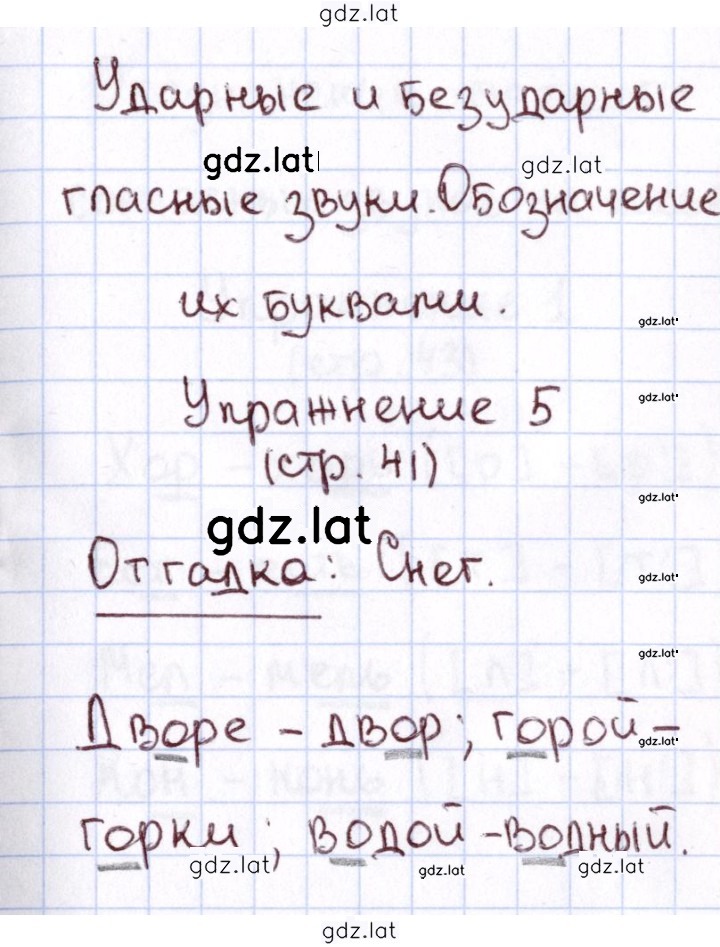 gdz.lat
Ударные и безударные
gdz.lat gdz.lat
гласные звуки. Обозначение
их буквами.
gdz.lat
Упражнение 5
gdz.lat
(стр. 41)
gdz.lat
gdz.lat
Отгадка: Снег.
gdz.lat
gdz.lat
Дворе - двор; горой-
gdz.lat
горки; водой-водный.
gdz.lat gdz.lat gdz.lat
gdz.lat